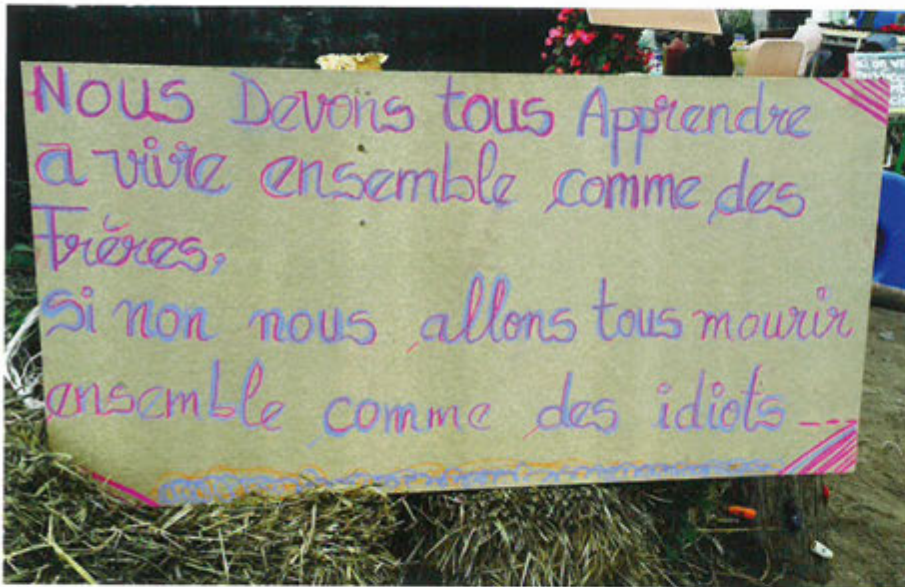 Nous Devons tous Apprendre
a vivre ensemble comme des
Frères,
Si non nous allons tous mourir
ensemble comme des idiots ---